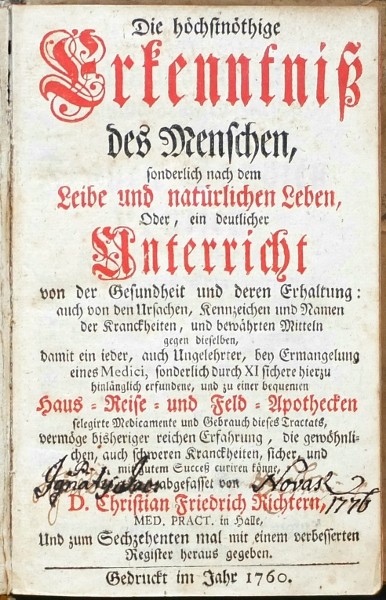 Die höchstnöthige
Erkenntniß
des Menschen,
sonderlich nach dem
Leibe und natürlichen Leben,
Oder, ein deutlicher
Unterricht
von der Gesundheit und deren Erhaltung:
auch von den Ursachen, Kennzeichen und Namen
der Kranckheiten, und bewährten Mitteln
gegen dieselben,
damit ein ieder, auch Ungelehrter, bey Ermangelung
eines Medici, sonderlich durch XI sichere hierzu
hinlänglich erfundene, und zu einer bequemen
Haus-Reise-und Feld-Apothecken
selegirte Medicamente und Gebrauch dieses Tractats,
vermöge bisheriger reichen Erfahrung, die gewöhnli-
chen, auch schweren Kranckheiten, sicher, und
mit gutem Succeß curiren könne,
abgefasset von Novak
D. Christian Friedrich Richtern, 1776
MED. PRACT. in Halle,
Und zum Sechzehenten mal mit einem verbesserten
Register heraus gegeben.
Gedruckt im Jahr 1760.